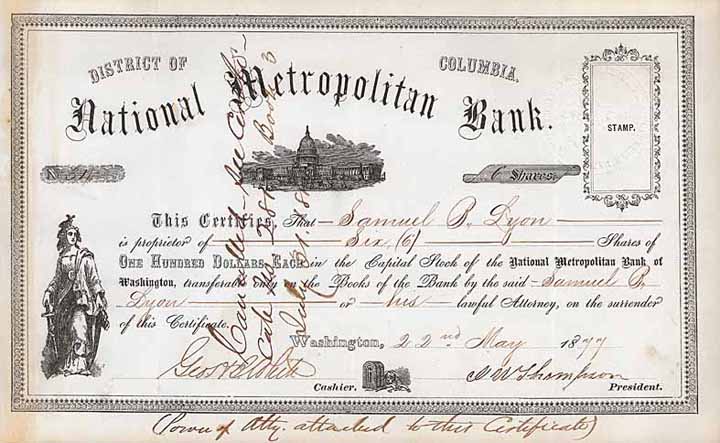 DISTRICT OF COLUMBIA.
National Metropolitan Bank.
STAMP.
No. 6 Shares.
This Certifies, That Samuel P. Lyon
is proprietor of Six (6) Shares of
ONE HUNDRED DOLLARS, EACH, in the Capital Stock of the National Metropolitan Bank of
Washington, transferable only on the Books of the Bank by the said Samuel P.
Lyon or his lawful Attorney, on the surrender
of this Certificate.
Washington, 22nd May 1877
Cashier. President.
J W Thompson
Cancelled - See Certfs-
Book 3
(Power of Atty. attached to this Certificate)